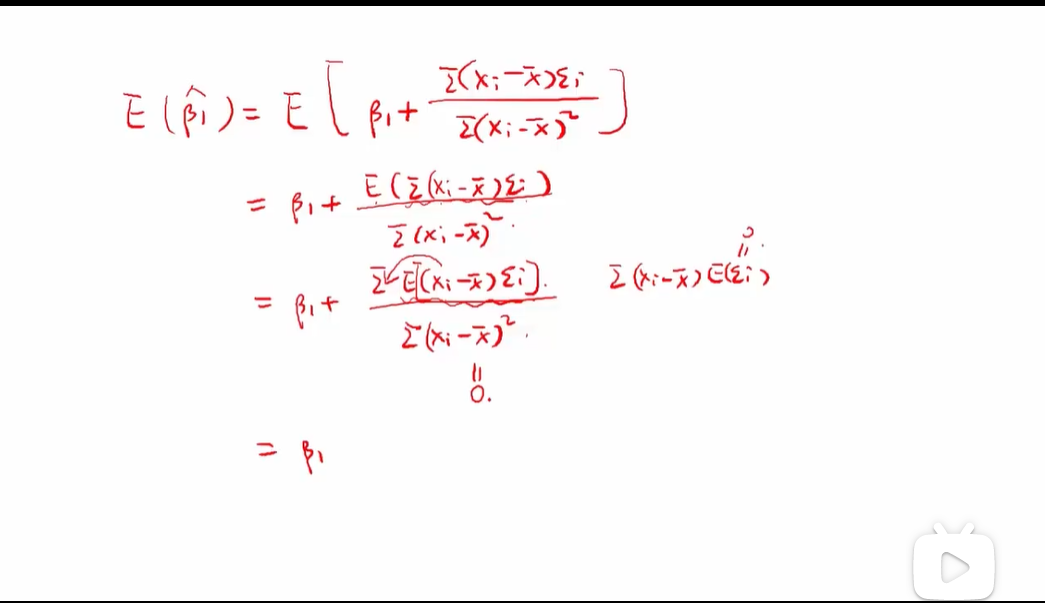 E(β̂₁) = E[β₁ + Σ(xᵢ-x̄)εᵢ / Σ(xᵢ-x̄)²]
= β₁ + E(Σ(xᵢ-x̄)εᵢ) / Σ(xᵢ-x̄)².
= β₁ + ΣE[(xᵢ-x̄)εᵢ]. / Σ(xᵢ-x̄)².  Σ(xᵢ-x̄)E(εᵢ)
0.
‖
‖
0.
= β₁